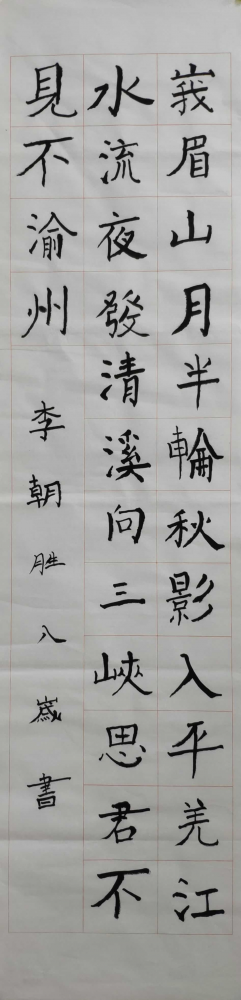 峩眉山月半輪秋影入平羌江
水流夜發清溪向三峽思君不
見不渝州
李朝胜八歲書